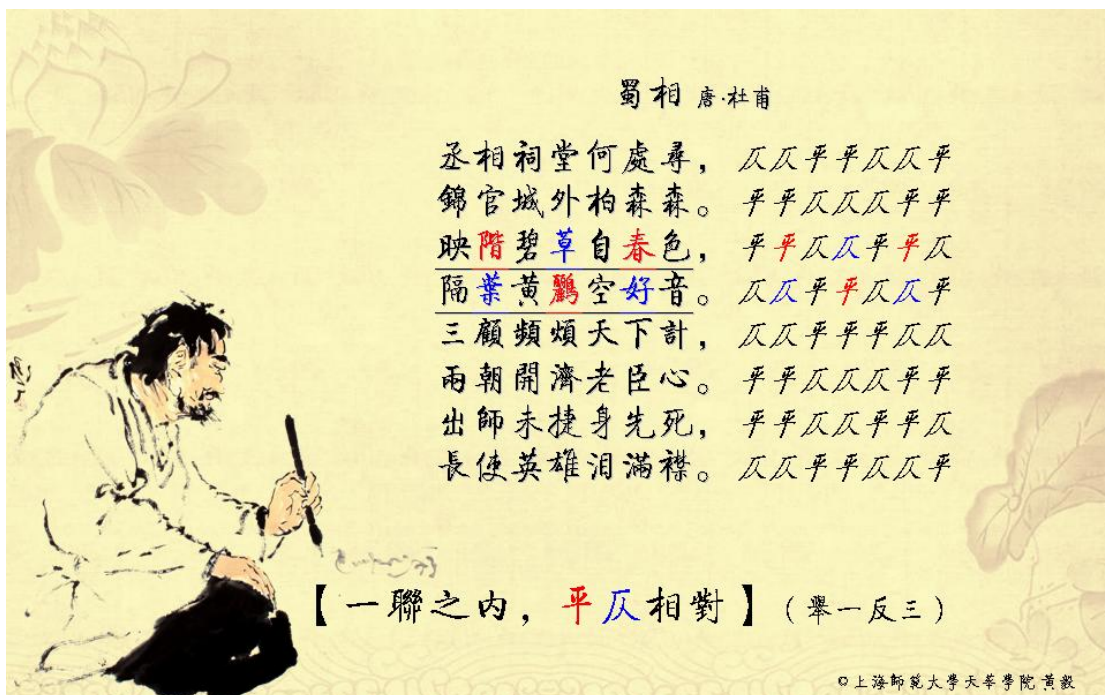 蜀相 唐·杜甫
丞相祠堂何處尋， 仄仄平平仄仄平
錦官城外柏森森。 平平仄仄仄平平
映階碧草自春色， 平平仄仄平平仄
隔葉黃鸝空好音。 仄仄平平仄仄平
三顧頻煩天下計， 仄仄平平平仄仄
兩朝開濟老臣心。 平平仄仄仄平平
出師未捷身先死， 平平仄仄平平仄
長使英雄泪滿襟。 仄仄平平仄仄平
【一聯之内，平仄相對】（舉一反三）
©上海師範大學天華學院 黃毅